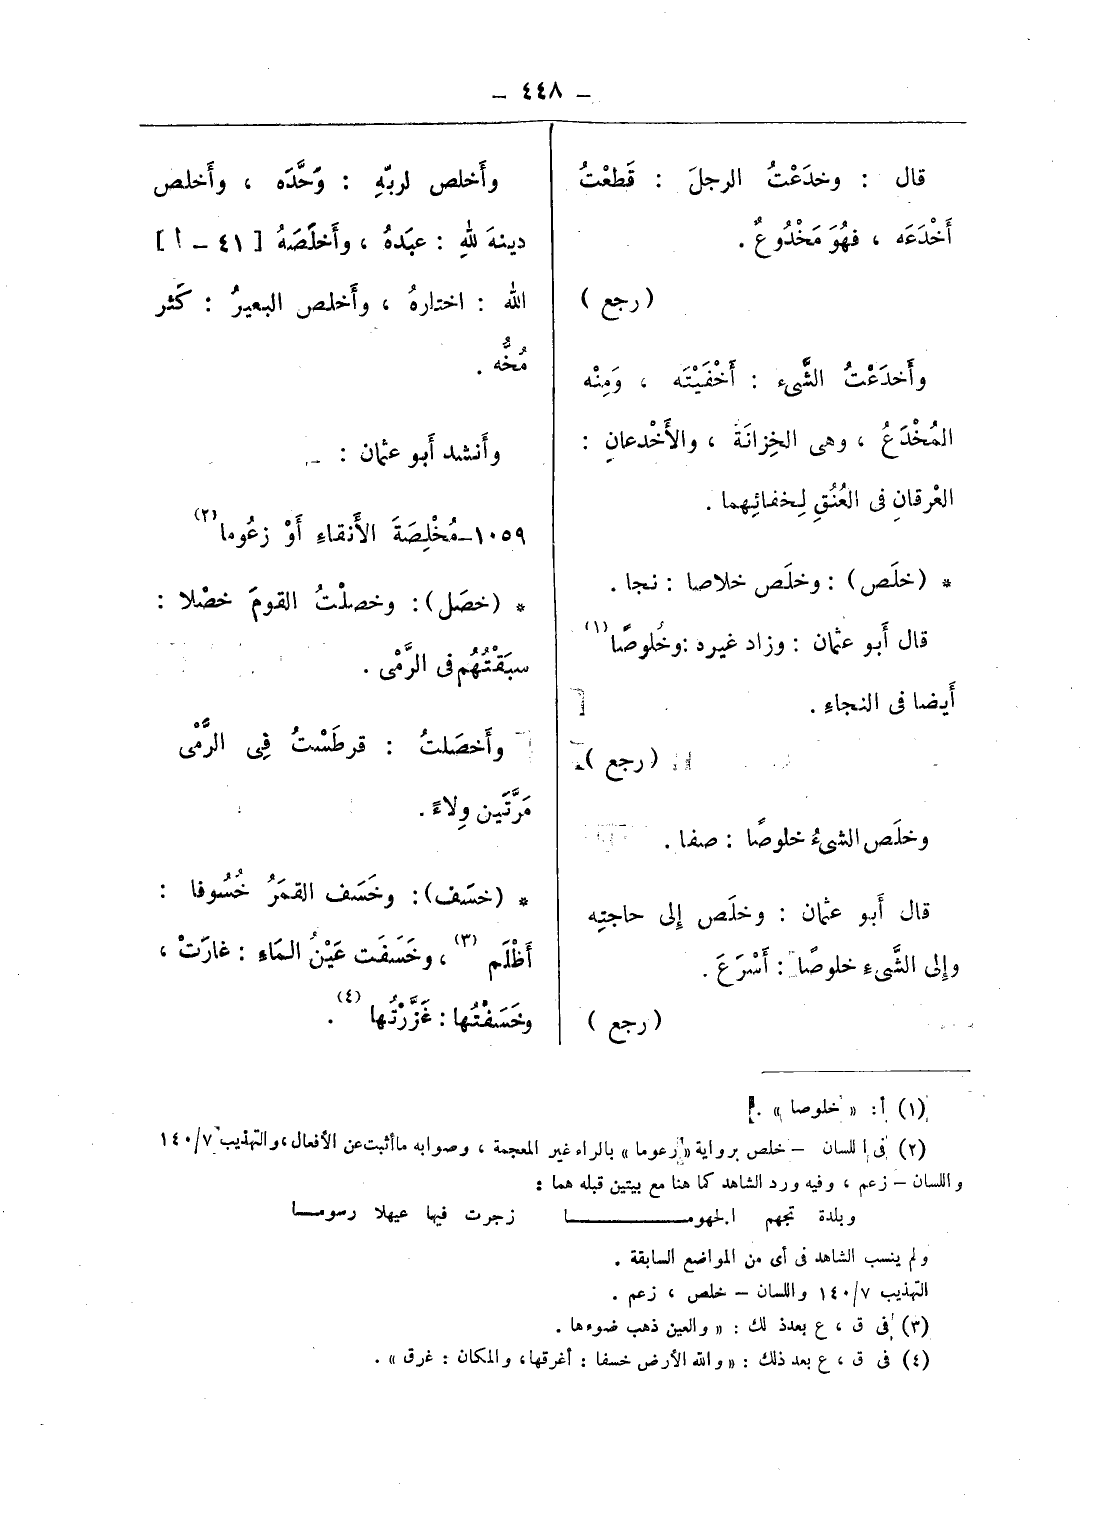 – ٤٤٨ –
قال : وخدَعْتُ الرجلَ : قَطعْتُ
أَخْدَعَه ، فهُوَ مَخْدُوعٌ .
( رجع )
وأَخدَعْتُ الشَّىء : أَخْفَيْتَه ، وَمِنْه
المُخْدَعُ ، وهى الخِزانَة ، والأَخْدعانِ :
العْرقانِ فى العُنُقِ لِخفائِهما .
* ( خلَص ) : وخلَص خلاصا : نجا .
قال أَبو عثمان : وزاد غيره :وخُلوصًا(١)
أَيضا فى النجاءِ .
( رجع )
وخلَص الشىءُ خلوصًا : صفا .
قال أَبو عثمان : وخلَص إِلى حاجتِه
وإِلى الشَّىءِ خلوصًا : أَسْرَعَ .
( رجع )
وأَخلص لربّهِ : وَحَّدَه ، وأَخلص
دينهَ للهِ : عبَدهُ ، وأَخلَصَهُ [ ٤١ – أ ]
اللهُ : اختارهُ ، وأَخلص البعيرُ : كَثر
مُخُّه .
وأَنشد أَبو عثمان :
١٠٥٩–مُخْلِصَةَ الأَنقاءِ أَوْ زعُوما(٢)
* (خصَل) : وخصلْتُ القومَ خصْلا :
سبَقْتُهُم فى الرَّمْى .
وأَخصَلتُ : قرطَسْتُ فِى الرَّمْى
مَرَّتَين وِلاءً .
* (خسَف) : وخَسَف القمَرُ خُسُوفا :
أَظْلَم (٣) ، وخَسَفَت عَيْنُ المَاءِ : غارَتْ ،
وخَسَفْتُها : غَزَّرْتُها (٤) .
(١) أ : « خلوصا » .
(٢) فى اللسان – خلص برواية « رعوما » بالراء غير المعجمة ، وصوابه ماأثبت عن الأفعال ، والتهذيب ١٤٠/٧
واللسان – زعم ، وفيه ورد الشاهد كما هنا مع بيتين قبله هما :
وبلدة تجهم الجهومــــا زجرت فيها عيهلا رسومــا
ولم ينسب الشاهد فى أى من المواضع السابقة .
التهذيب ١٤٠/٧ واللسان – خلص ، زعم .
(٣) فى ق ، ع بعدذ لك : « والعين ذهب ضوءها .
(٤) فى ق ، ع بعد ذلك : « والله الأرض خسفا : أغرقها ، والمكان : غرق » .